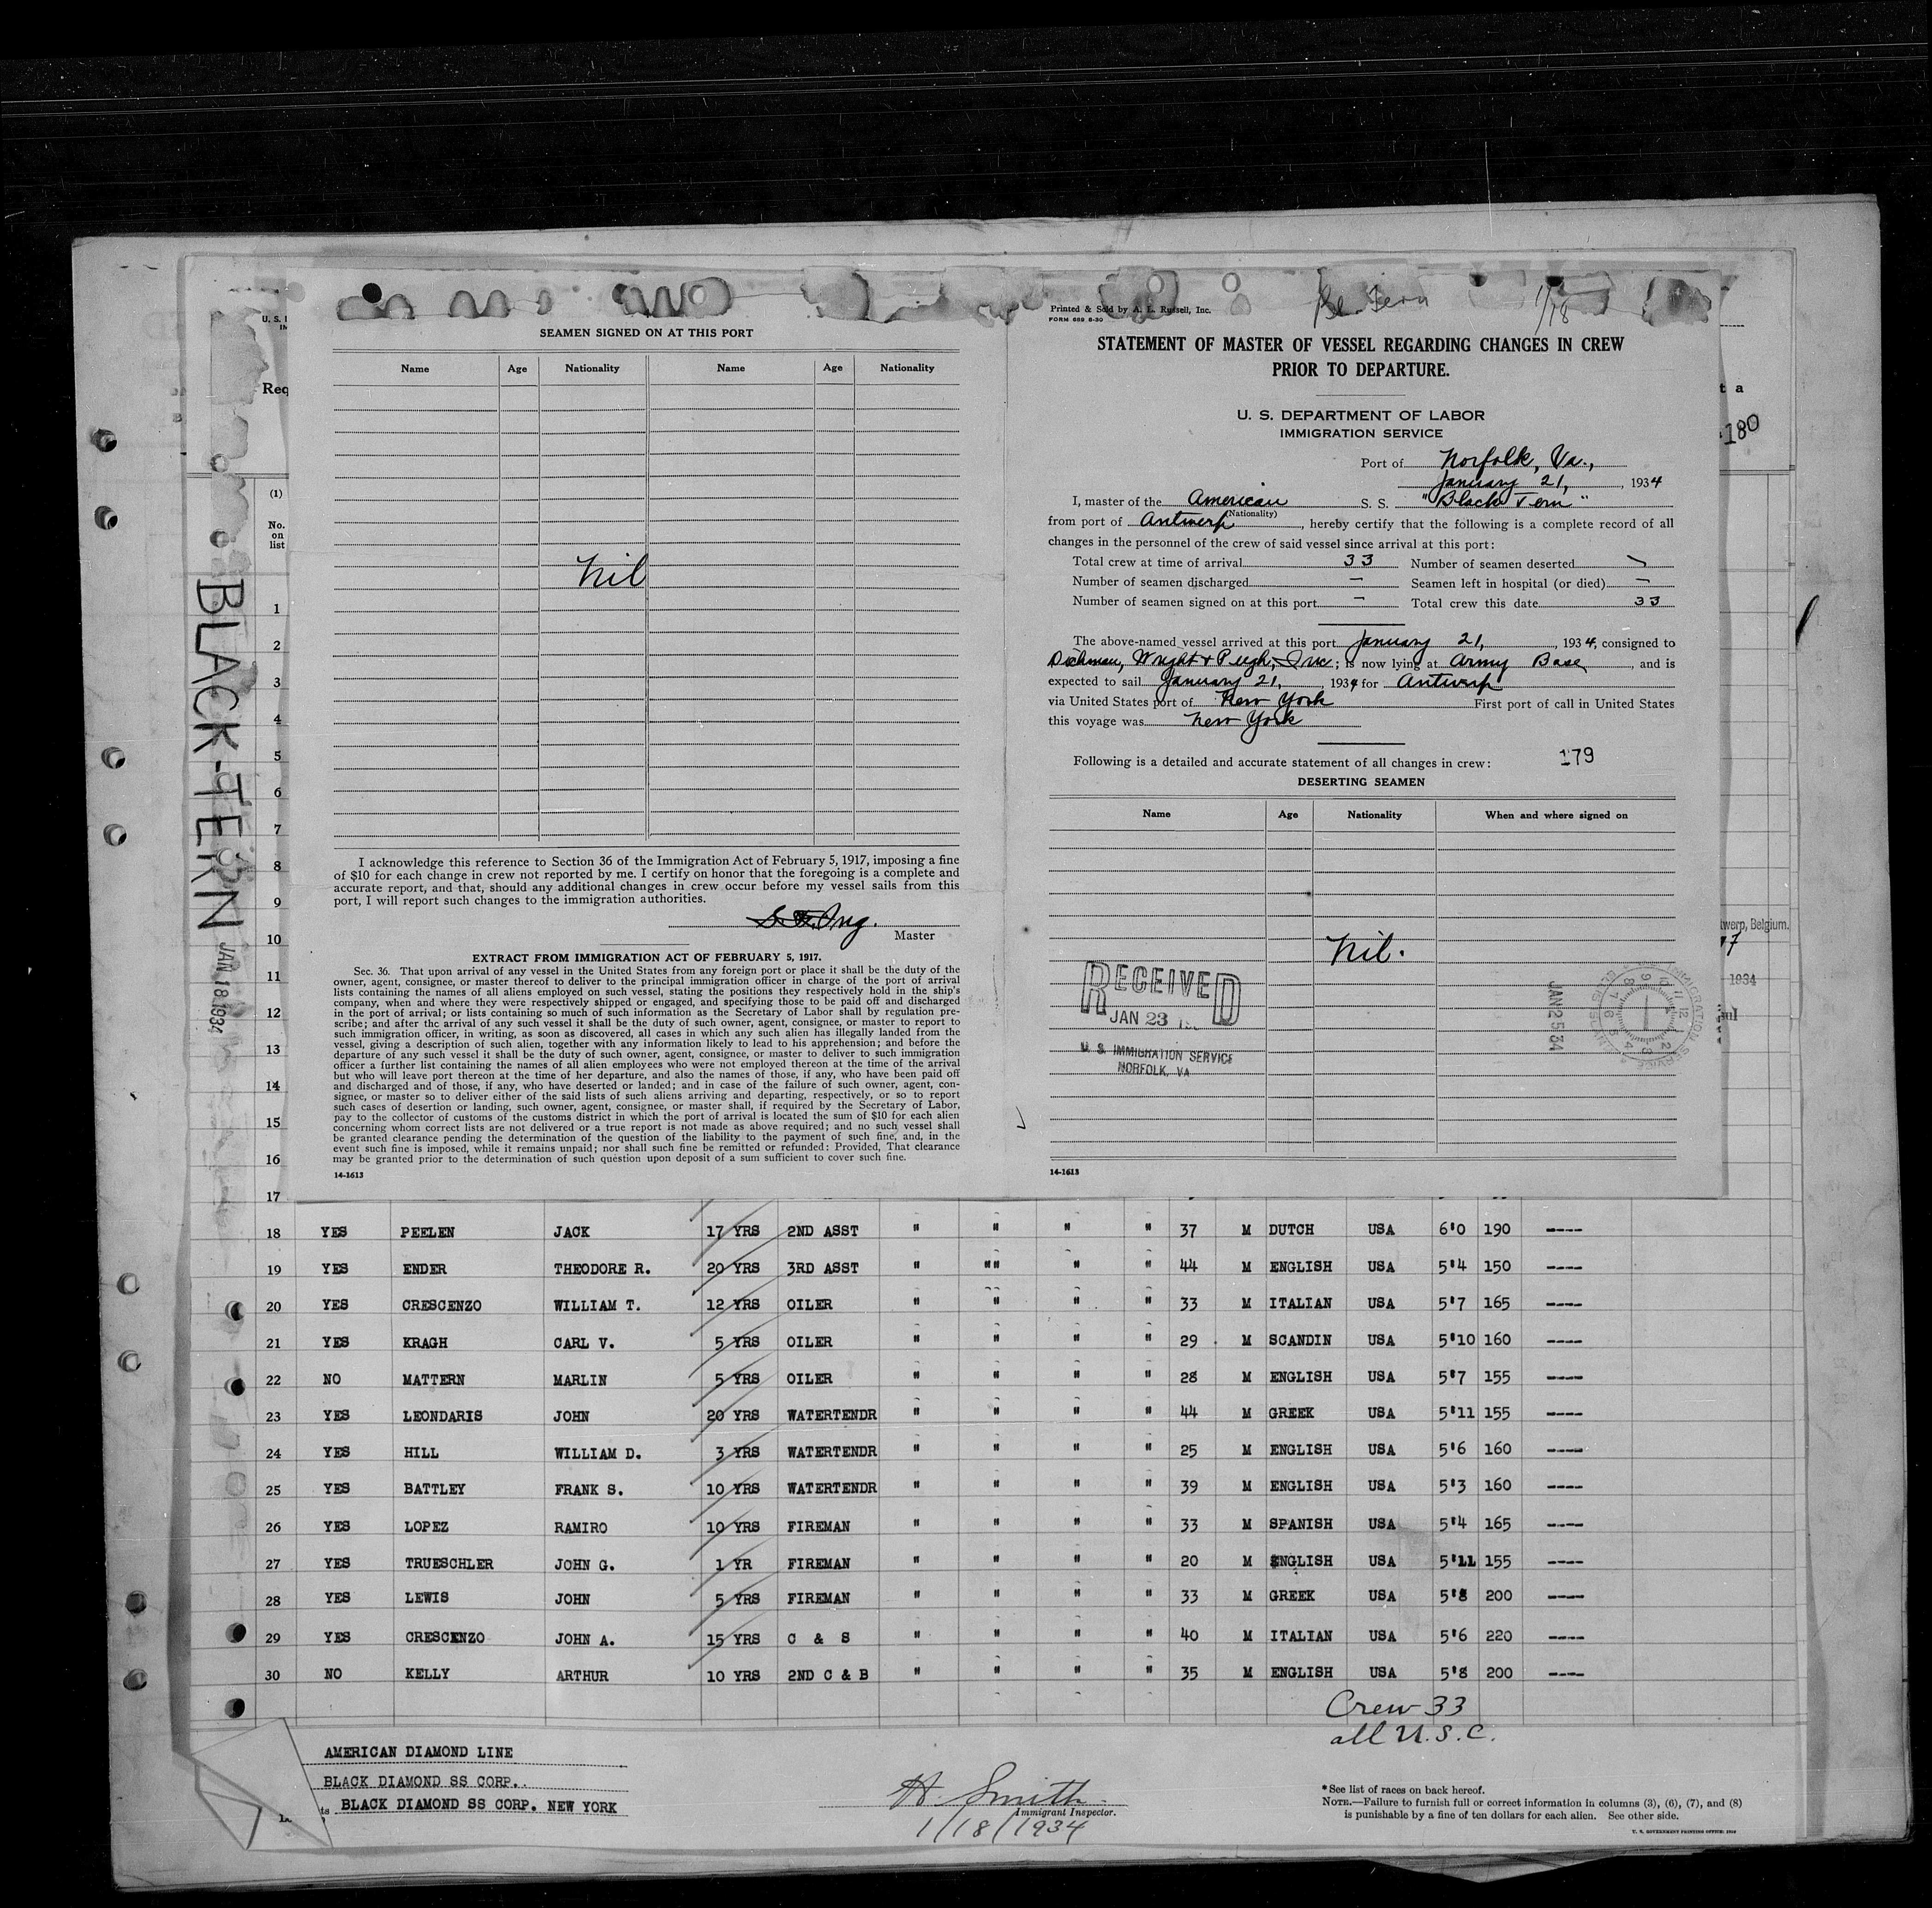 Bl. Tern 1/18
SEAMEN SIGNED ON AT THIS PORT
Name Age Nationality Name Age Nationality
Nil
I acknowledge this reference to Section 36 of the Immigration Act of February 5, 1917, imposing a fine
of $10 for each change in crew not reported by me. I certify on honor that the foregoing is a complete and
accurate report, and that, should any additional changes in crew occur before my vessel sails from this
port, I will report such changes to the immigration authorities.
Master
EXTRACT FROM IMMIGRATION ACT OF FEBRUARY 5, 1917.
Sec. 36. That upon arrival of any vessel in the United States from any foreign port or place it shall be the duty of the
owner, agent, consignee, or master thereof to deliver to the principal immigration officer in charge of the port of arrival
lists containing the names of all aliens employed on such vessel, stating the positions they respectively hold in the ship's
company, when and where they were respectively shipped or engaged, and specifying those to be paid off and discharged
in the port of arrival; or lists containing so much of such information as the Secretary of Labor shall by regulation pre-
scribe; and after the arrival of any such vessel it shall be the duty of such owner, agent, consignee, or master to report to
such immigration officer, in writing, as soon as discovered, all cases in which any such alien has illegally landed from the
vessel, giving a description of such alien, together with any information likely to lead to his apprehension; and before the
departure of any such vessel it shall be the duty of such owner, agent, consignee, or master to deliver to such immigration
officer a further list containing the names of all alien employees who were not employed thereon at the time of the arrival
but who will leave port thereon at the time of her departure, and also the names of those, if any, who have been paid off
and discharged and of those, if any, who have deserted or landed; and in case of the failure of such owner, agent, con-
signee, or master so to deliver either of the said lists of such aliens arriving and departing, respectively, or so to report
such cases of desertion or landing, such owner, agent, consignee, or master shall, if required by the Secretary of Labor,
pay to the collector of customs of the customs district in which the port of arrival is located the sum of $10 for each alien
concerning whom correct lists are not delivered or a true report is not made as above required; and no such vessel shall
be granted clearance pending the determination of the question of the liability to the payment of such fine, and, in the
event such fine is imposed, while it remains unpaid; nor shall such fine be remitted or refunded: Provided, That clearance
may be granted prior to the determination of such question upon deposit of a sum sufficient to cover such fine.
14-1613
Printed & Sold by A. E. Russell, Inc.
FORM 689 6-30
STATEMENT OF MASTER OF VESSEL REGARDING CHANGES IN CREW
PRIOR TO DEPARTURE.
U. S. DEPARTMENT OF LABOR
IMMIGRATION SERVICE
Port of Norfolk, Va.,
January 21, 1934
I, master of the American S. S. "Black Tern"
(Nationality)
from port of Antwerp, hereby certify that the following is a complete record of all
changes in the personnel of the crew of said vessel since arrival at this port:
Total crew at time of arrival 33 Number of seamen deserted
Number of seamen discharged — Seamen left in hospital (or died) —
Number of seamen signed on at this port — Total crew this date 33
The above-named vessel arrived at this port January 21, 1934, consigned to
Dichman, Wright & Pugh, Inc.; is now lying at Army Base, and is
expected to sail January 21, 1934 for Antwerp
via United States port of New York First port of call in United States
this voyage was New York
Following is a detailed and accurate statement of all changes in crew: 179
DESERTING SEAMEN
Name Age Nationality When and where signed on
Nil.
RECEIVED
JAN 23
U. S. IMMIGRATION SERVICE
NORFOLK, VA
JAN 25 34
14-1613
BLACK-TERN
JAN 18 1934
U. S.
Req
(1)
No.
on
list
1
2
3
4
5
6
7
8
9
10
11
12
13
14
15
16
17
t a
180
twerp, Belgium.
1934
18 YES PEELEN JACK 17 YRS 2ND ASST " " " " 37 M DUTCH USA 6'0 190 ----
19 YES ENDER THEODORE R. 20 YRS 3RD ASST " "" " " 44 M ENGLISH USA 5'4 150 ----
20 YES CRESCENZO WILLIAM T. 12 YRS OILER " " " " 33 M ITALIAN USA 5'7 165 ----
21 YES KRAGH CARL V. 5 YRS OILER " " " " 29 M SCANDIN USA 5'10 160 ----
22 NO MATTERN MARLIN 5 YRS OILER " " " " 28 M ENGLISH USA 5'7 155 ----
23 YES LEONDARIS JOHN 20 YRS WATERTENDR " " " " 44 M GREEK USA 5'11 155 ----
24 YES HILL WILLIAM D. 3 YRS WATERTENDR " " " " 25 M ENGLISH USA 5'6 160 ----
25 YES BATTLEY FRANK S. 10 YRS WATERTENDR " " " " 39 M ENGLISH USA 5'3 160 ----
26 YES LOPEZ RAMIRO 10 YRS FIREMAN " " " " 33 M SPANISH USA 5'4 165 ----
27 YES TRUESCHLER JOHN G. 1 YR FIREMAN " " " " 20 M ENGLISH USA 5'11 155 ----
28 YES LEWIS JOHN 5 YRS FIREMAN " " " " 33 M GREEK USA 5'8 200 ----
29 YES CRESCENZO JOHN A. 15 YRS C & S " " " " 40 M ITALIAN USA 5'6 220 ----
30 NO KELLY ARTHUR 10 YRS 2ND C & B " " " " 35 M ENGLISH USA 5'8 200 ----
Crew 33
all U.S.C.
AMERICAN DIAMOND LINE
BLACK DIAMOND SS CORP.
ts BLACK DIAMOND SS CORP. NEW YORK
H. Smith
Immigrant Inspector.
1/18/1934
*See list of races on back hereof.
NOTE.—Failure to furnish full or correct information in columns (3), (6), (7), and (8)
is punishable by a fine of ten dollars for each alien. See other side.
U. S. GOVERNMENT PRINTING OFFICE: